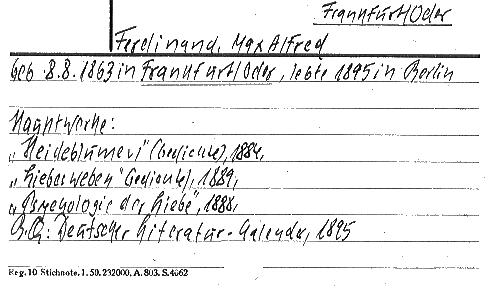 Frankfurt/Oder
Ferdinand, Max Alfred
geb. 8.8.1863 in Frankfurt/Oder, lebte 1895 in Berlin
Hauptwerke:
„Heideblumen" (Gedichte), 1884,
„Liebesweben" Gedichte), 1889,
„Psychologie der Liebe", 1888,
B.Q: Deutscher Literatur-Kalender, 1895
Reg. 10 Stichnote. 1. 50. 232000. A. 803. S. 4662